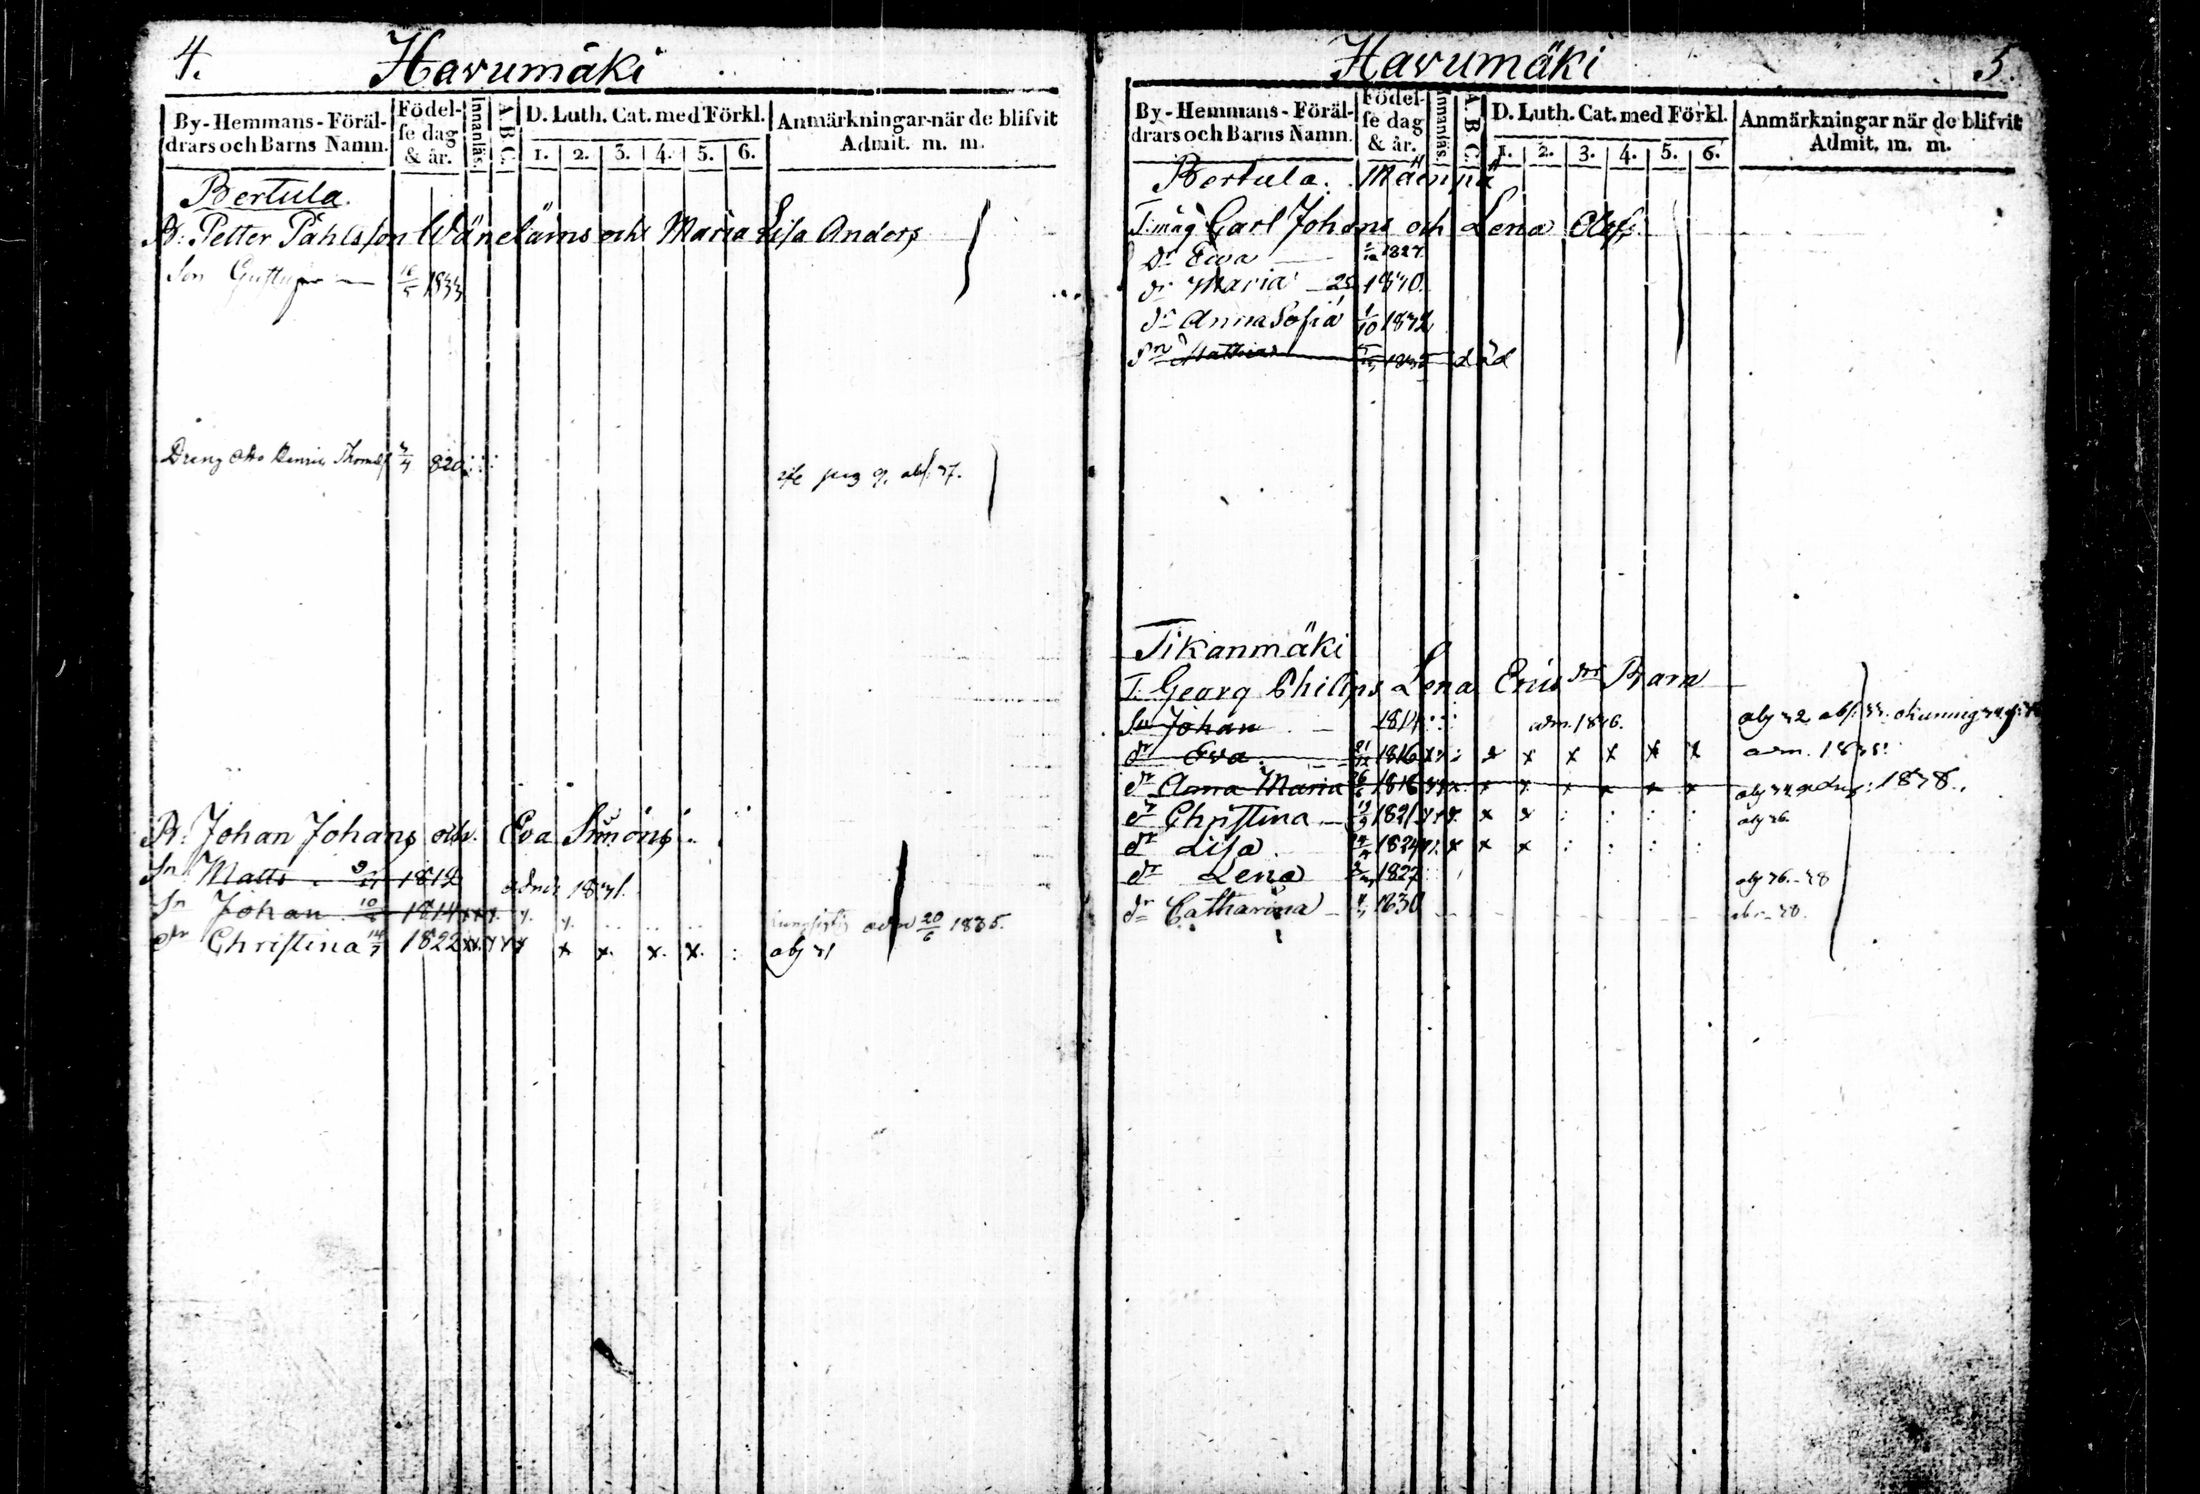 4.
Havumäki
By-Hemmans-Föräl-
drars och Barns Namn.
Födel-
se dag
& år.
Innanläs.
A B C.
D. Luth. Cat. med Förkl.
1. 2. 3. 4. 5. 6.
Anmärkningar när de blifvit
Admit. m. m.
Bertula.
B: Petter Påhlsson och Maria Lisa Anders
Son 16/5 1833
Dreng Henric 820
pag 9.
B: Johan Johans och Eva Simons
Sn Matts 1812 1831.
Sn Johan 10 1814 x x x. x. x. adm 20/6 1835.
dr Christina 14/7 1822 x x. x x x x x. x. x. : obj 31
Havumäki
5.
By-Hemmans-Föräl-
drars och Barns Namn.
Födel-
se dag
& år.
Innanläs.
A B C.
D. Luth. Cat. med Förkl.
1. 2. 3. 4. 5. 6.
Anmärkningar när de blifvit
Admit. m. m.
Bertula. Mäenpä
T:måg Carl Johans och Lena Olofs
dr Ewa 1827.
dr Maria 1830.
dr Anna Sofia 1/10 1832
Sn Mathias död
Tikanmäki
T. Georg Philips Lena Ericsdr Barn
Sn Johan 1814 : : adm. 1836.
dr Eva 21/12 1816 x x : x x x x x x adm. 1835.
dr Anna Maria 26 1818 x x x x x x x x 1838.
dr Christina 19/9 1821 x x x. x x : : : : obj 36
dr Lisa 1824 x x x x : : : :
dr Lena 1827 obj 36.-38
dr Catharina 1830